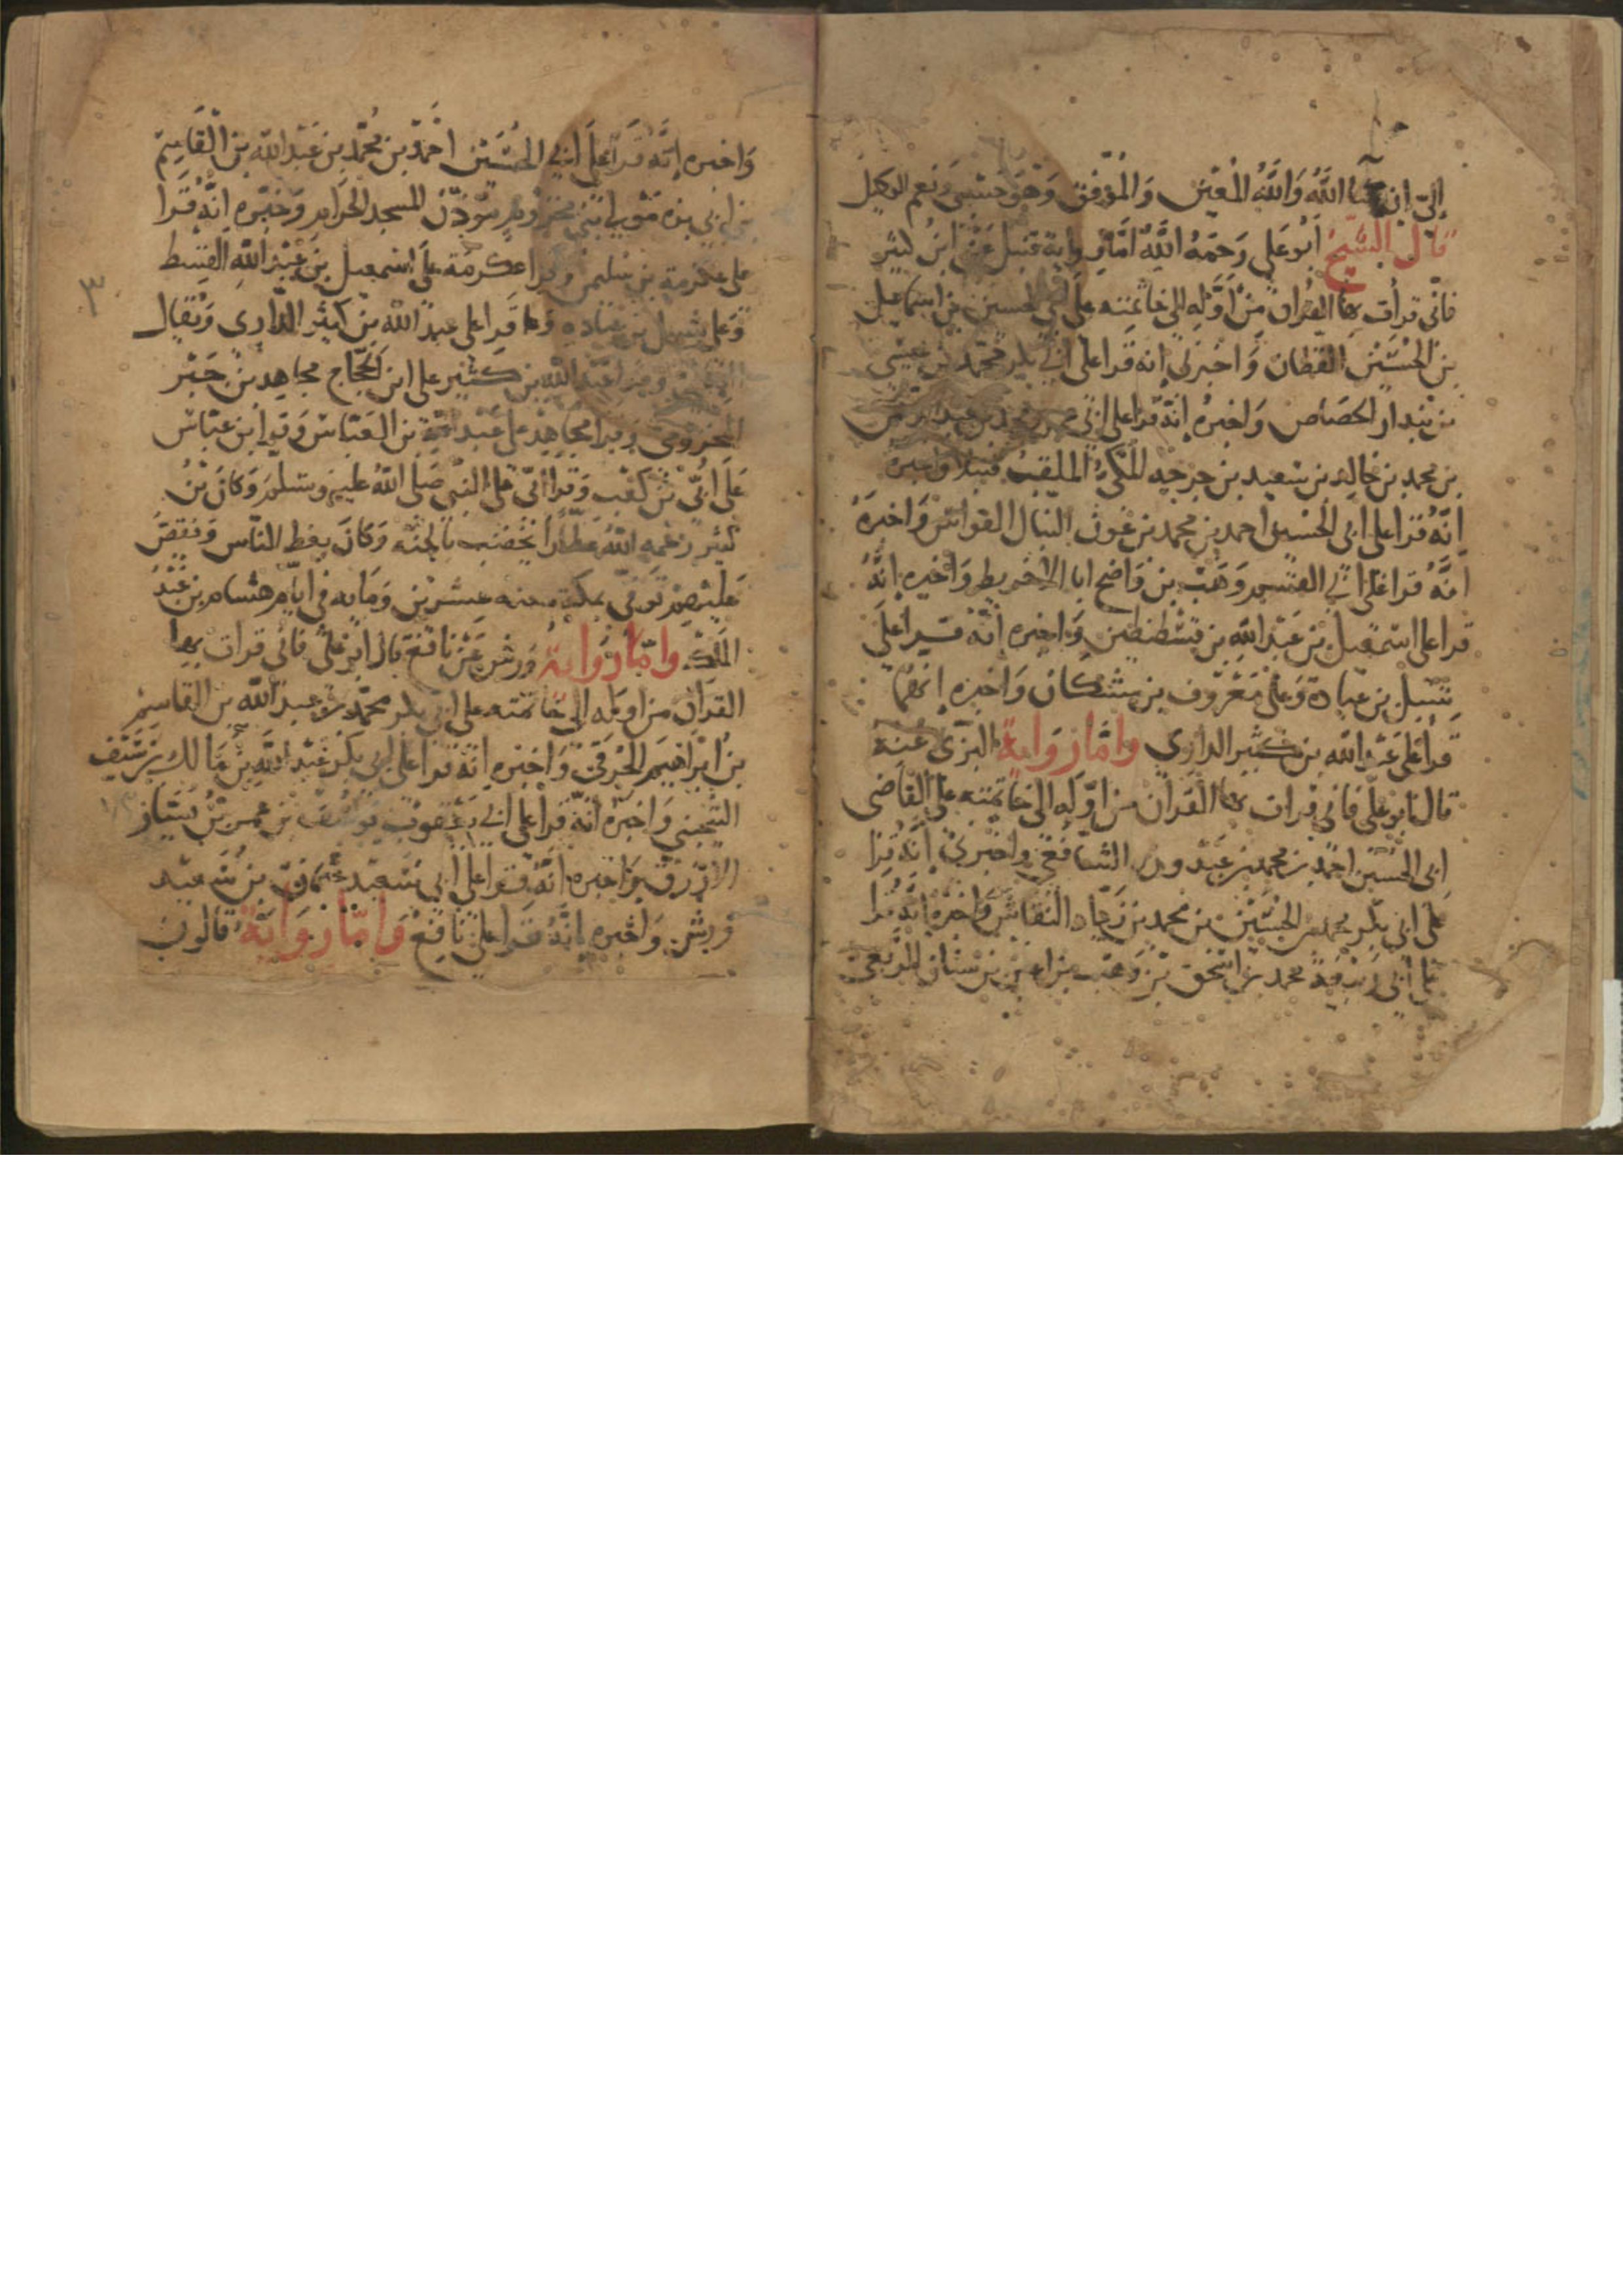 إلىّ إن شا اللَّهُ وَاللَّهُ المُعِين وَالمُوَفِّق وَهوَ حَسْبى ونعم الوكيل
قال الشيخُ أبُو عَلي رَحمَهُ اللَّهُ امَّا رواية قنبل عَن ابنُ كثير
فانّى قرأت بها القرآن مِنْ اوَّله إلى خاتمته على ابى الحسين بن اسماعيل
بن الحُسَيْن القطان وَاخبرني انه قرا على ابي بكر محمّد بن عيسى
بن بندار الحصاص وَاخبره إنّه قرا على ابى عمر محمد بن عبد الرحمن
بن محمد بن خالد بن سعيد بن جرجه المكىُّ الملقب قنبلا واخبره
انَّهُ قرا على ابى الحسين احمد بن محمد بن عون النبال القواس وَاخبرَهُ
انَّهُ قرا على ابي القسم وَهَب بن وَاضح ابا الاخريط وَاخبره انَّهُ
قرا على اسمعيل بن عَبْد اللهِ بن قسطنطين وَاخبره انّه قرا على
شبل بن عبادة وَعلى مَعْرُوف بن مشكان وَاخبره إنهما
قرا على عَبْد الله بن كثير الدارى وامّا روَاية البزّى عنهُ
قال ابو علّى فانّى قرات بها القرآن من اوّله الى خاتمته على القاضى
ابى الحُسَين احمد بن محمد بن عَبْدوين الشافعّي واخبرني انّه قرا
على ابى بكر محمد بن الحُسَيْن بن محمد بن زياد النقاش وَاخبره إنّه قرا
على ابى رَبيعة محمد بن اسحق بن وَهب بن اعين بن سنان الربعى
وَاخبره إنَّه قَرَا على ابي الحُسَيْن احْمَد بن محُمَّد بن عَبْد الله بن القَاسِم
بن ابى بزه مَوْلى بَنى مخزُوم مؤذّن المسجد الحرَام وَخبّره إنّهُ قَرا
على عكرمة بن سليمن وقرا عكرمَة على اسمعيل بن عَبْد الله القسط
وَعلى شبل بن عباده وَهما قرا على عبد الله بن كثير الدّارى وَيُقال
وقرا عبد الله بن كثير على ابن الحَجّاج مجاهِد بنُ جَبْر
المخزومى وقرا مجاهِد على عَبْد الله بن العَبّاس وَقرا ابن عبّاس
عَلَى أبُىّ بْن كَعْب وَقرا ابّى على النبى صَلى اللهُ عليهِ وسَلم وَكانَ بْنُ
كثير رَحمهِ اللهُ عطَّاراً يخضب بالحِنّه وَكانَ يعظ النّاس وَيَقصُّ
عَليْهِمْ توَفّى بمكة سنه عشرين وَمايه فى ايّام هشام بن عَبْدُ
الملك وامّا رَواية وَرش عَنْ نافع قال ابُو عَلى فانّى قرات بها
القرآن من اوله إلى خاتمته على ابى بكر محمّد بن عبد الله بن القاسِم
بنُ ابْراهيم الحُرَقى وَاخبره انّه قرا على ابى بكر عَبْد اللهِ بن مَالك بن سَيْف
التُجيبى وَاخبره انّه قرا على ابي يَعْقوب يُوسُف بن عمرو بْن يَسَار
الازرَق وَاخبره انَّهُ قرا على ابى سَعيد عثمان بن سَعيْد
وَرش وَاخبره إنَّهُ قرا على نَافِعْ وَامّا روَايَة قالون